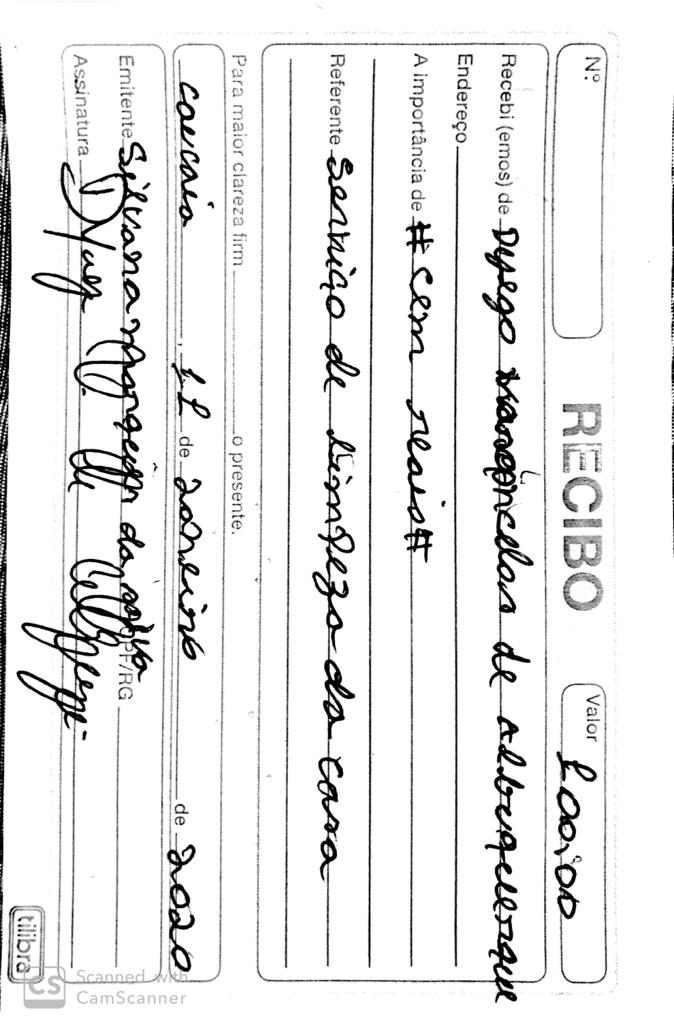 Nº RECIBO Valor 100,00
Recebi (emos) de Dyego Vasconcelos de Albuquerque
Endereço
A importância de # cem reais #
Referente Serviço de limpeza da casa
Para maior clareza firm o presente.
caucaia, 11 de Janeiro de 2020
Emitente Silvana da Silva CPF/RG
Assinatura
tilibra
CS Scanned with
CamScanner